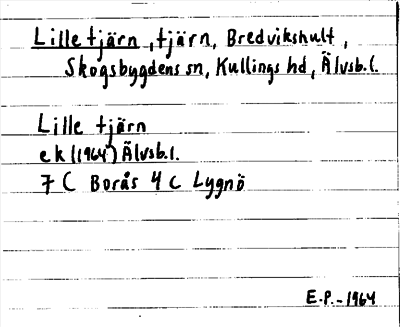 Lille tjärn, tjärn, Bredvikshult,
Skogsbygdens sn, Kullings hd, Älvsb.l.
Lille tjärn
ek (1964) Älvsb.l.
7 C Borås 4 c Lygnö
E.P. - 1964